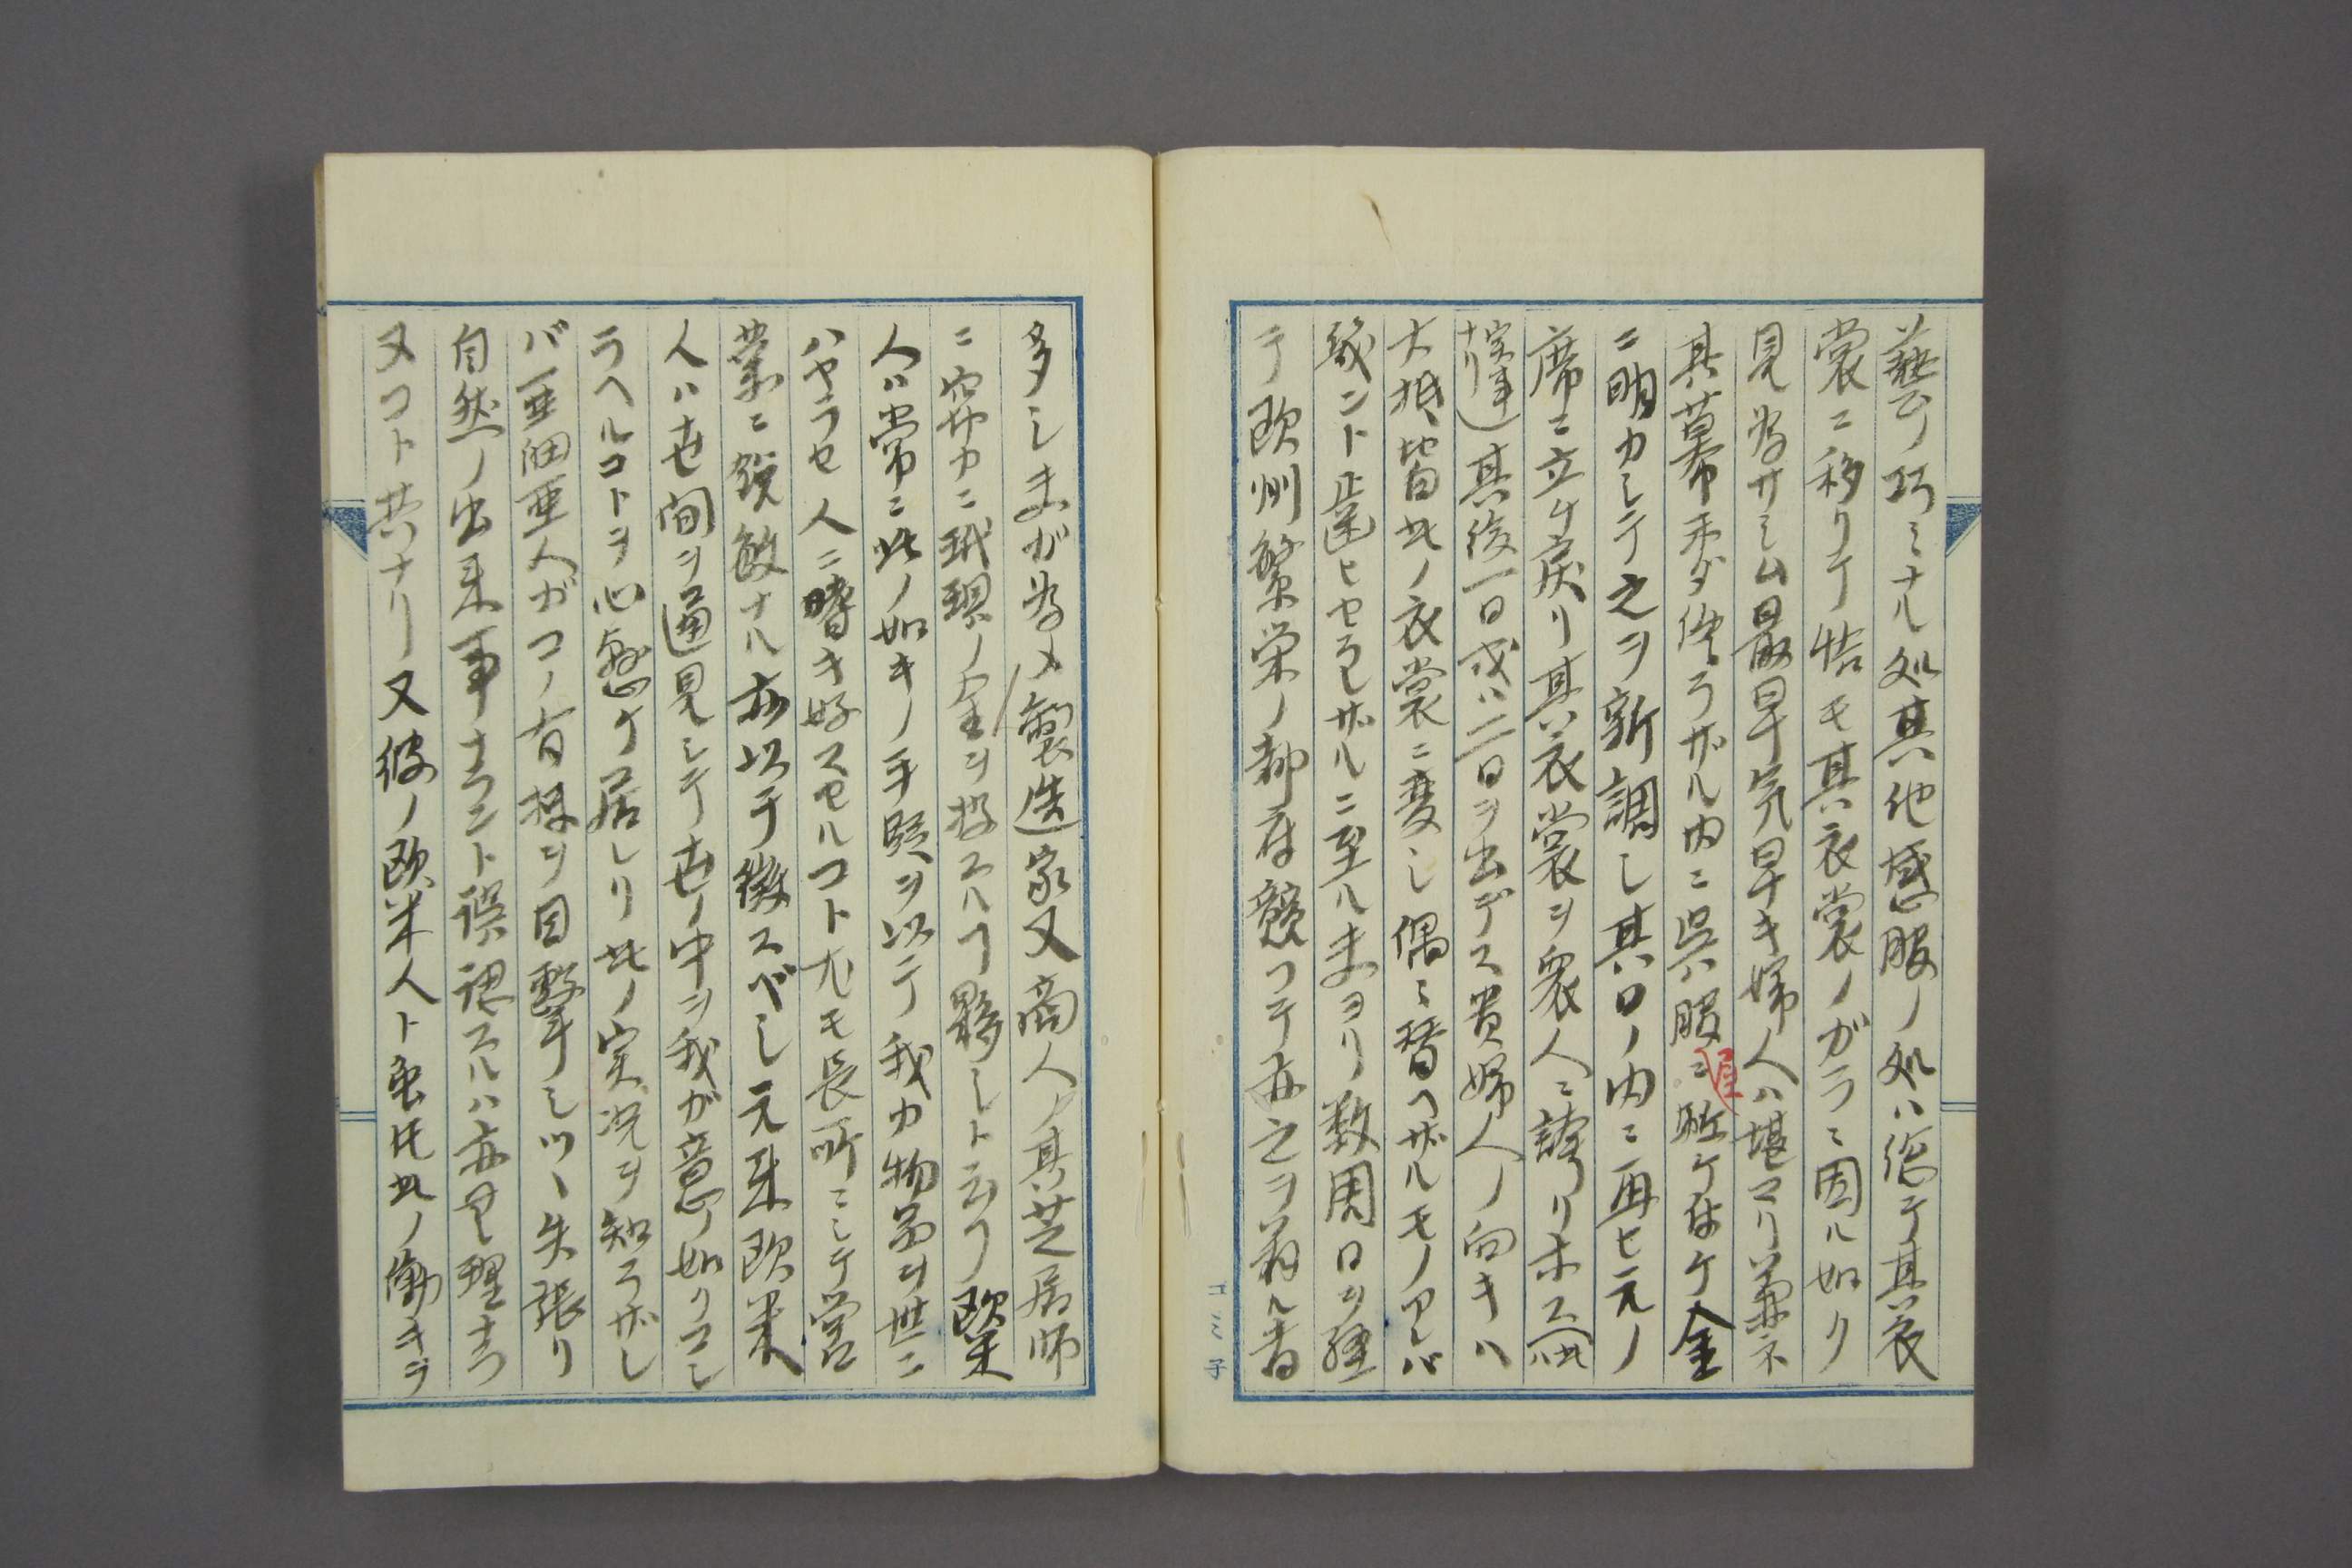 藝ノ巧ミナル処其他感服ノ処ハ総テ其衣
裳ニ移リテ恰モ其衣裳ノガラニ因ル如ク
見為サシム最早気早キ婦人ハ堪マリ兼ネ
其幕未ダ終ラザル内ニ呉服屋ニ駈ケ付ケ金
ニ明カシテ之ヲ新調シ其日ノ内ニ再ビ元ノ
席ニ立チ戻リ其衣裳ヲ衆人ニ誇リ示ス(此
実事ナリ)其後一日或ハ二日ヲ出デス貴婦人ノ向キハ
大抵皆此ノ衣裳ニ変シ偶ニ替ヘザルモノアレバ
幾ント歯ヒセラレザルニ至ル夫ヨリ数周日ヲ経
テ欧州繁栄ノ都府競フテ亦之ヲ着ル者
多シ夫ガ為メ製造家又商人ノ其芝居師
ニ窃カニ玳瑁ノ金ヲ投スル夥シト云フ欧米
人ハ常ニ此ノ如キノ手段ヲ以テ我カ物品ヲ世ニ
ハヤラセ人ニ嗜キ好スセルコト尤モ長所ニシテ営
業ニ鋭敏ナル亦以テ徴スベシ元来欧米
人ハ世間ヲ通見シテ世ノ中ヲ我ガ意ノ如クコシ
ラヘルコトヲ心懸ケ居レリ此ノ実况ヲ知ラザレ
バ亜細亜人ガコノ有様ヲ目撃シツヽ矢張リ
自然ノ出来事ナラント誤認スルハ亦是レ理ナラ
ヌコト共ナリ又彼ノ欧米人ト虽ㇳモ此ノ働キヲ